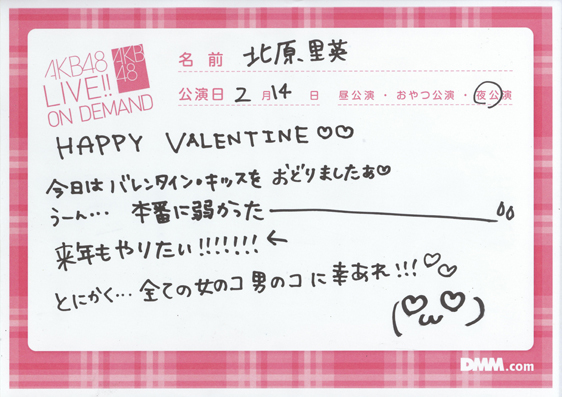 AKB48
LIVE!!
ON DEMAND
AKB
48
名前 北原里英
公演日 2月14日 昼公演・おやつ公演・夜公演
HAPPY VALENTINE♡♡
今日はバレンタイン・キッスを おどりましたぁ♡
うーん… 本番に弱かったーーー
来年もやりたい!!!!!!! ←
とにかく… 全ての女のコ男のコに幸あれ!!! ♡♡
(♡ω♡)
DMM.com